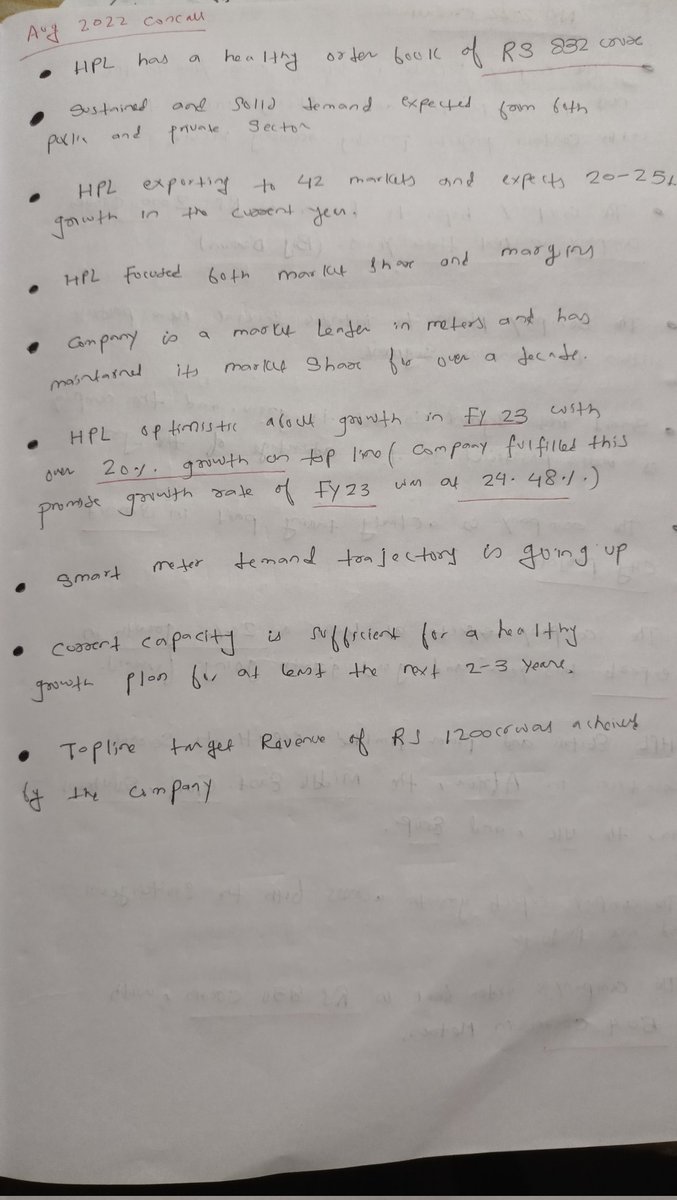 Aug 2022 Concall
• HPL has a healthy order book of RS 832 crore
• Sustained and Solid demand expected from both
public and private Sector
• HPL exporting to 42 markets and expects 20-25%
growth in the current year.
• HPL Focused both market Share and margins
• Company is a market Leader in meters and has
maintained its market Share for over a decade.
• HPL optimistic about growth in FY 23 with
over 20%. growth on top line ( Company fulfilled this
promise growth rate of FY23 was at 24.48%.)
• Smart meter demand trajectory is going up
• Current capacity is sufficient for a healthy
growth plan for at least the next 2-3 years.
• Topline target Revenue of RS 1200cr was achieved
by the Company